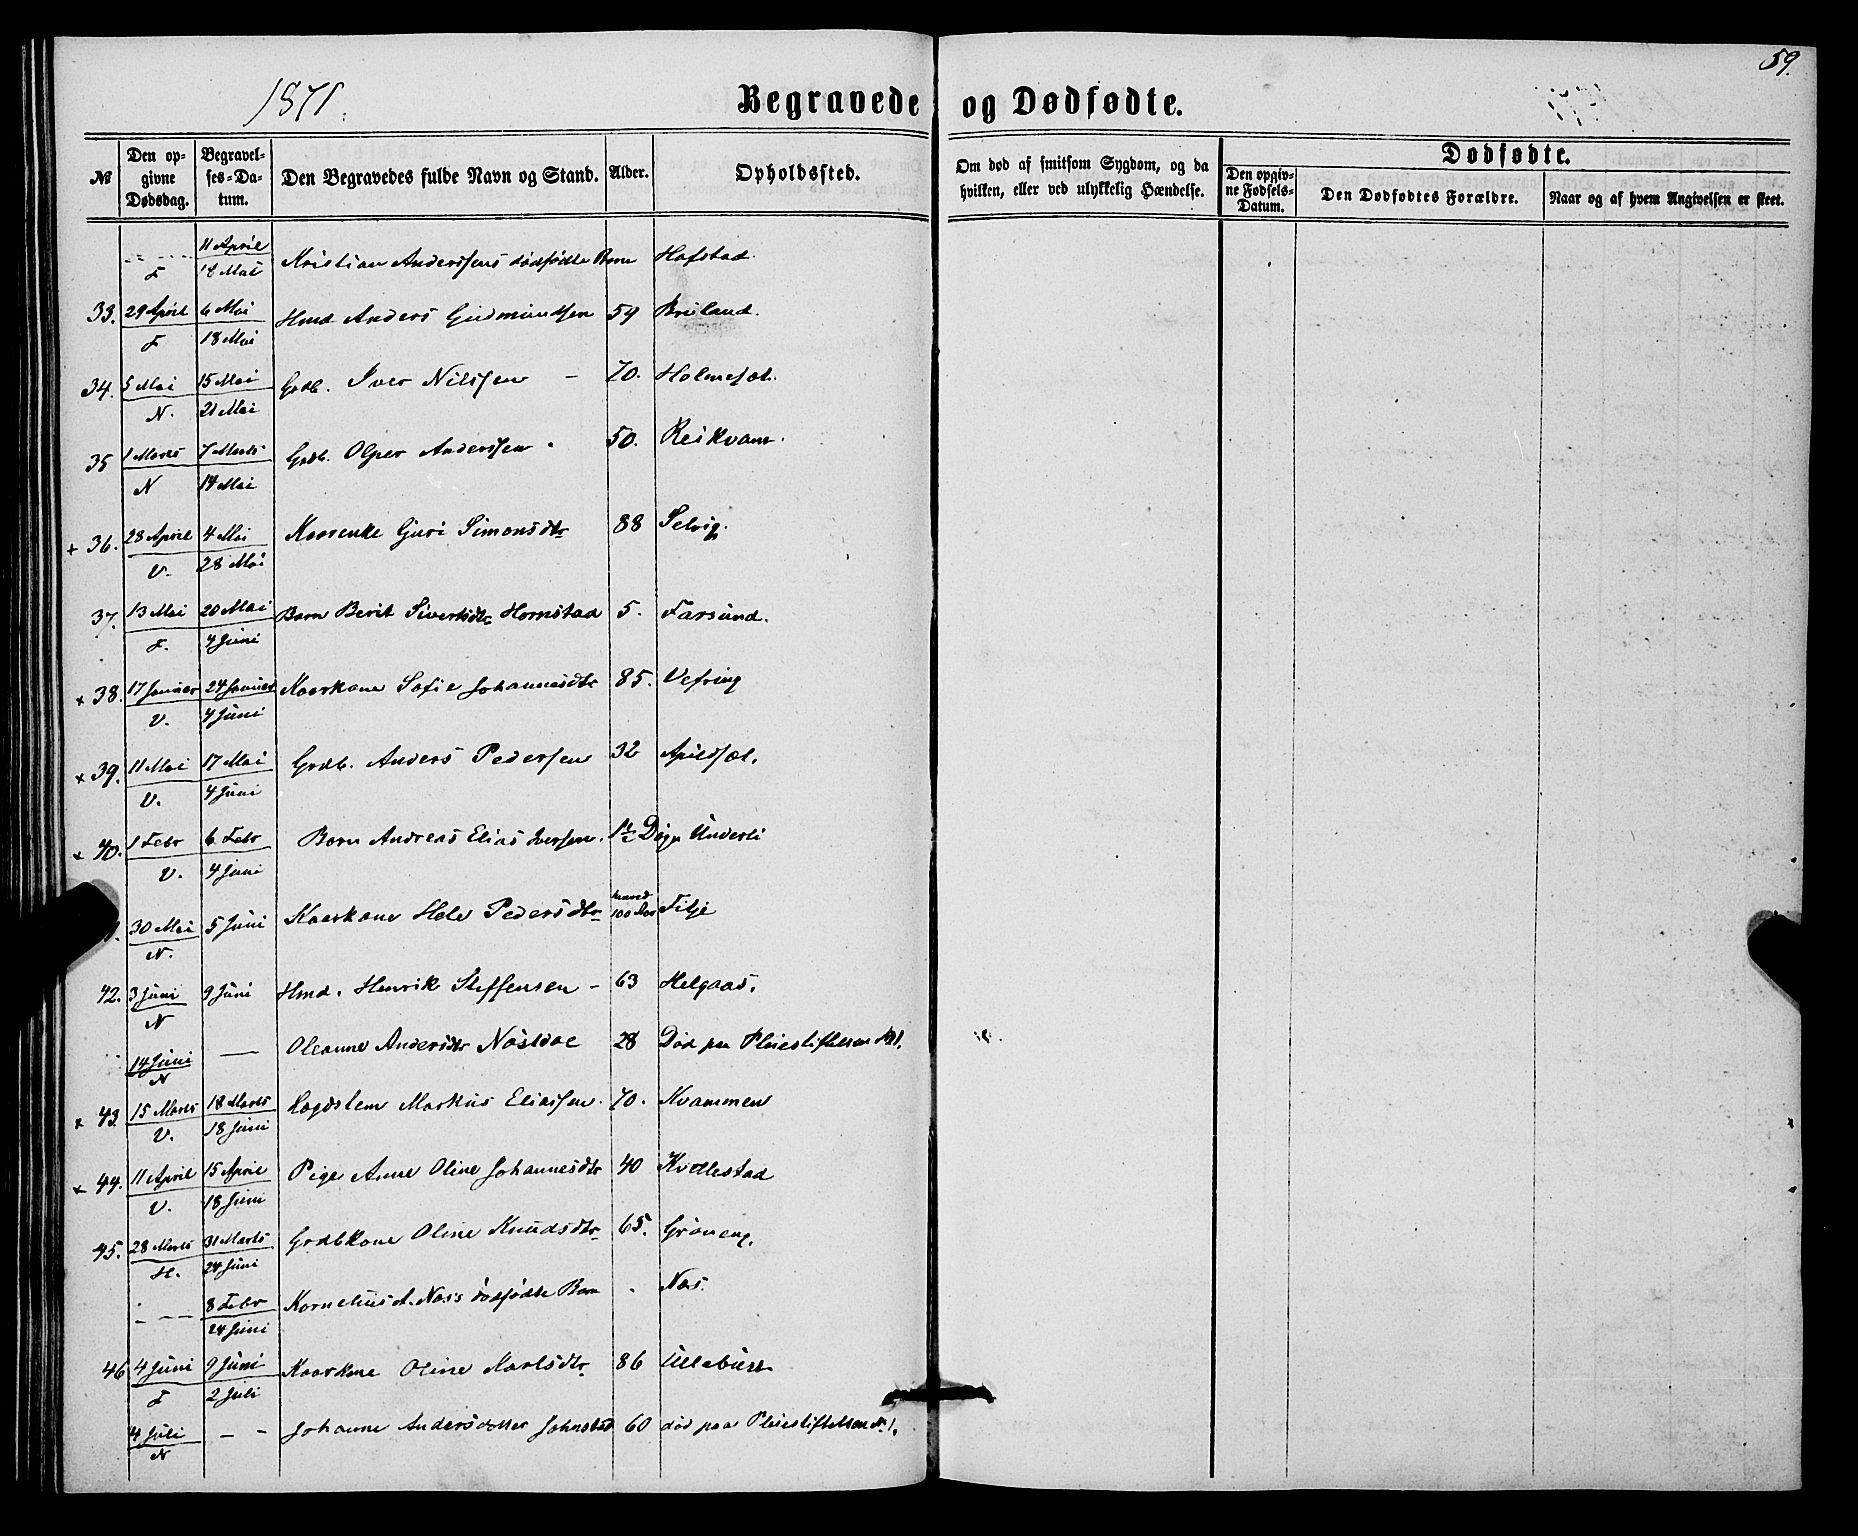 59.
1871.
Begravede og Dødfødte.
№
Den opgivne Dødsdag.
Begravelses-Datum.
Den Begravedes fulde Navn og Stand.
Alder.
Opholdssted.
Om død af smitsom Sygdom, og da hvilken, eller ved ulykkelig Hændelse.
Dødfødte.
Den opgivne Fødsels-Datum.
Den Dødfødtes Forældre.
Naar og af hvem Angivelsen er skeet.
F 11 April 18 Mai Kristian Anderssens dødfødte Barn Hafstad.
33. 29 April F 6 Mai 18 Mai Hmd Anders Gudmundsen 59 Bruland.
34. 5 Mai N. 15 Mai 21 Mai Grdb. Iver Nilssen - 70. Holmesæt.
35 1 Marts N 7 Marts 14 Mai Grdb. Olper Anderssen 50. Reikvam.
+ 36. 28 April V. 4 Mai 28 Mai Kaarenke Guri Simonsdtr 88 Selvig.
37. 13 Mai F. 20 Mai 4 Juni Barn Berit Sivertsdtr Hornstad 5. Farsund.
x 38. 17 Januar V. 24 Januar 4 Juni Kaarkone Sofie Johannesdtr 85. Vefring
x 39. 11 Mai V. 17 Mai 4 Juni Grdb. Anders Pedersen 32 Apildsæt.
x 40. 1 Febr V. 6 Febr 4 Juni Barn Andreas Elias Iversen. 1½ Døgn Underli
30 Mai N. 5 Juni Kaarkone Hele Pedersdtr 100 Aar Fitje
42. 3 Juni N 9 Juni Hmd. Henrik Steffensen - 63 Helgaas.
14 Juni N — Oleanne Andersdtr Nøstdal 28 Død paa Pleiestiftelsen № 1.
x 43. 15 Marts V. 18 Marts 18 Juni Lægdslem Markus Eliassen. 70. Kvammen
x 44. 11 April V. 15 April 18 Juni Pige Anne Oline Johannesdtr 40 Kvellestad
45. 28 Marts H. 31 Marts 24 Juni Grdbkone Oline Knudsdtr 65. Grøneng.
- - - 8 Febr 24 Juni Kornelius A. Næss dødfødte Barn Næs.
46 4 Juni F 9 Juni 2 Juli Kaarkone Oline Karlsdtr 86 Ullebust
4 Juli N - - Johanne Andersdatter 60 død paa Pleiestiftelsen № 1.